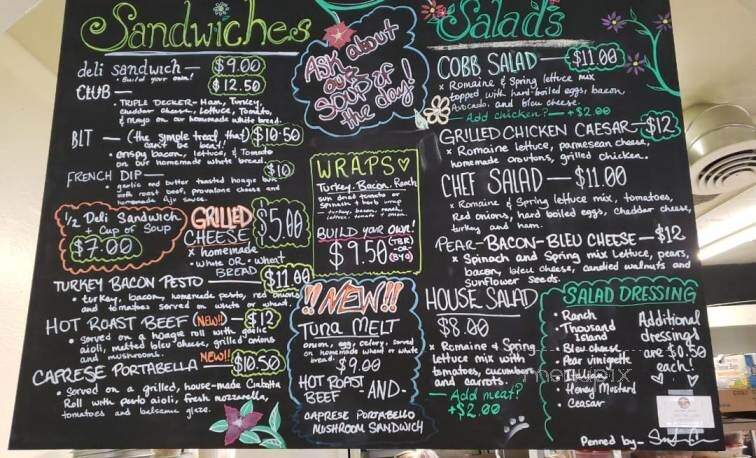 Sandwiches
deli sandwich — $9.00
- Build your own!
CLUB — $12.50
- TRIPLE DECKER- Ham, Turkey,
cheddar cheese, Lettuce, Tomato,
& mayo on our homemade white bread.
BLT — (the simple treat that $10.50
can't be beat!)
• crispy bacon, lettuce, & Tomato
on our homemade white bread.
FRENCH DIP — $10
- garlic and butter toasted hoagie
with roast beef, provalone cheese and
homemade Aju sauce.
1/2 Deli Sandwich
+ Cup of Soup
$7.00
GRILLED
CHEESE $5.00
x homemade
• white OR • wheat
BREAD
TURKEY BACON PESTO — $11.00
• turkey, bacon, homemade pesto, red onions
and tomatoes served on white or wheat.
HOT ROAST BEEF (NEW!!) $12
- served on a hoagie roll with garlic
aioli, melted bleu cheese, grilled onions
and mushrooms.
CAPRESE PORTABELLA NEW!! $10.50
• Served on a grilled, house-made Ciabatta
Roll with pesto aioli, fresh mozzarella,
tomatoes and balsamic glaze.
Ask about
our
SOUP of
the day!
WRAPS
Turkey. Bacon. Ranch
sun dried tomato or
spinach + herb wrap
- turkey, bacon, ranch,
lettuce, tomato + onion.
BUILD your OWN!
$9.50 (TBR)
-OR-
(BYO)
!!NEW!!
Tuna MELT
onion, egg, celery, served
on homemade wheat or white
bread.
$9.00
-AND-
HOT ROAST
BEEF
CAPRESE PORTABELLO
MUSHROOM SANDWICH
Salads
COBB SALAD — $11.00
x Romaine & Spring lettuce mix
topped with hard boiled eggs, bacon,
Avocado, and bleu cheese.
— Add chicken? — +$2.00
GRILLED CHICKEN CAESAR — $12
x Romaine lettuce, parmesean cheese,
homemade croutons, grilled chicken.
CHEF SALAD — $11.00
x Romaine & Spring lettuce mix, tomatoes,
Red onions, hard boiled eggs, cheddar cheese,
turkey and ham.
PEAR-BACON-BLEU CHEESE — $12
x Spinach and Spring mix Lettuce, pears,
bacon, bleu cheese, candied walnuts and
sunflower seeds.
HOUSE SALAD
$8.00
x Romaine & Spring
lettuce mix with
tomatoes, cucumber
and carrots.
— Add meat?
+$2.00
SALAD DRESSING
• Ranch
• Thousand
Island
• Bleu cheese
• Pear vinigrette
• Italian
• Honey Mustard
• Ceasar
Additional
dressings
are $0.50
each!
menupix
Penned by-